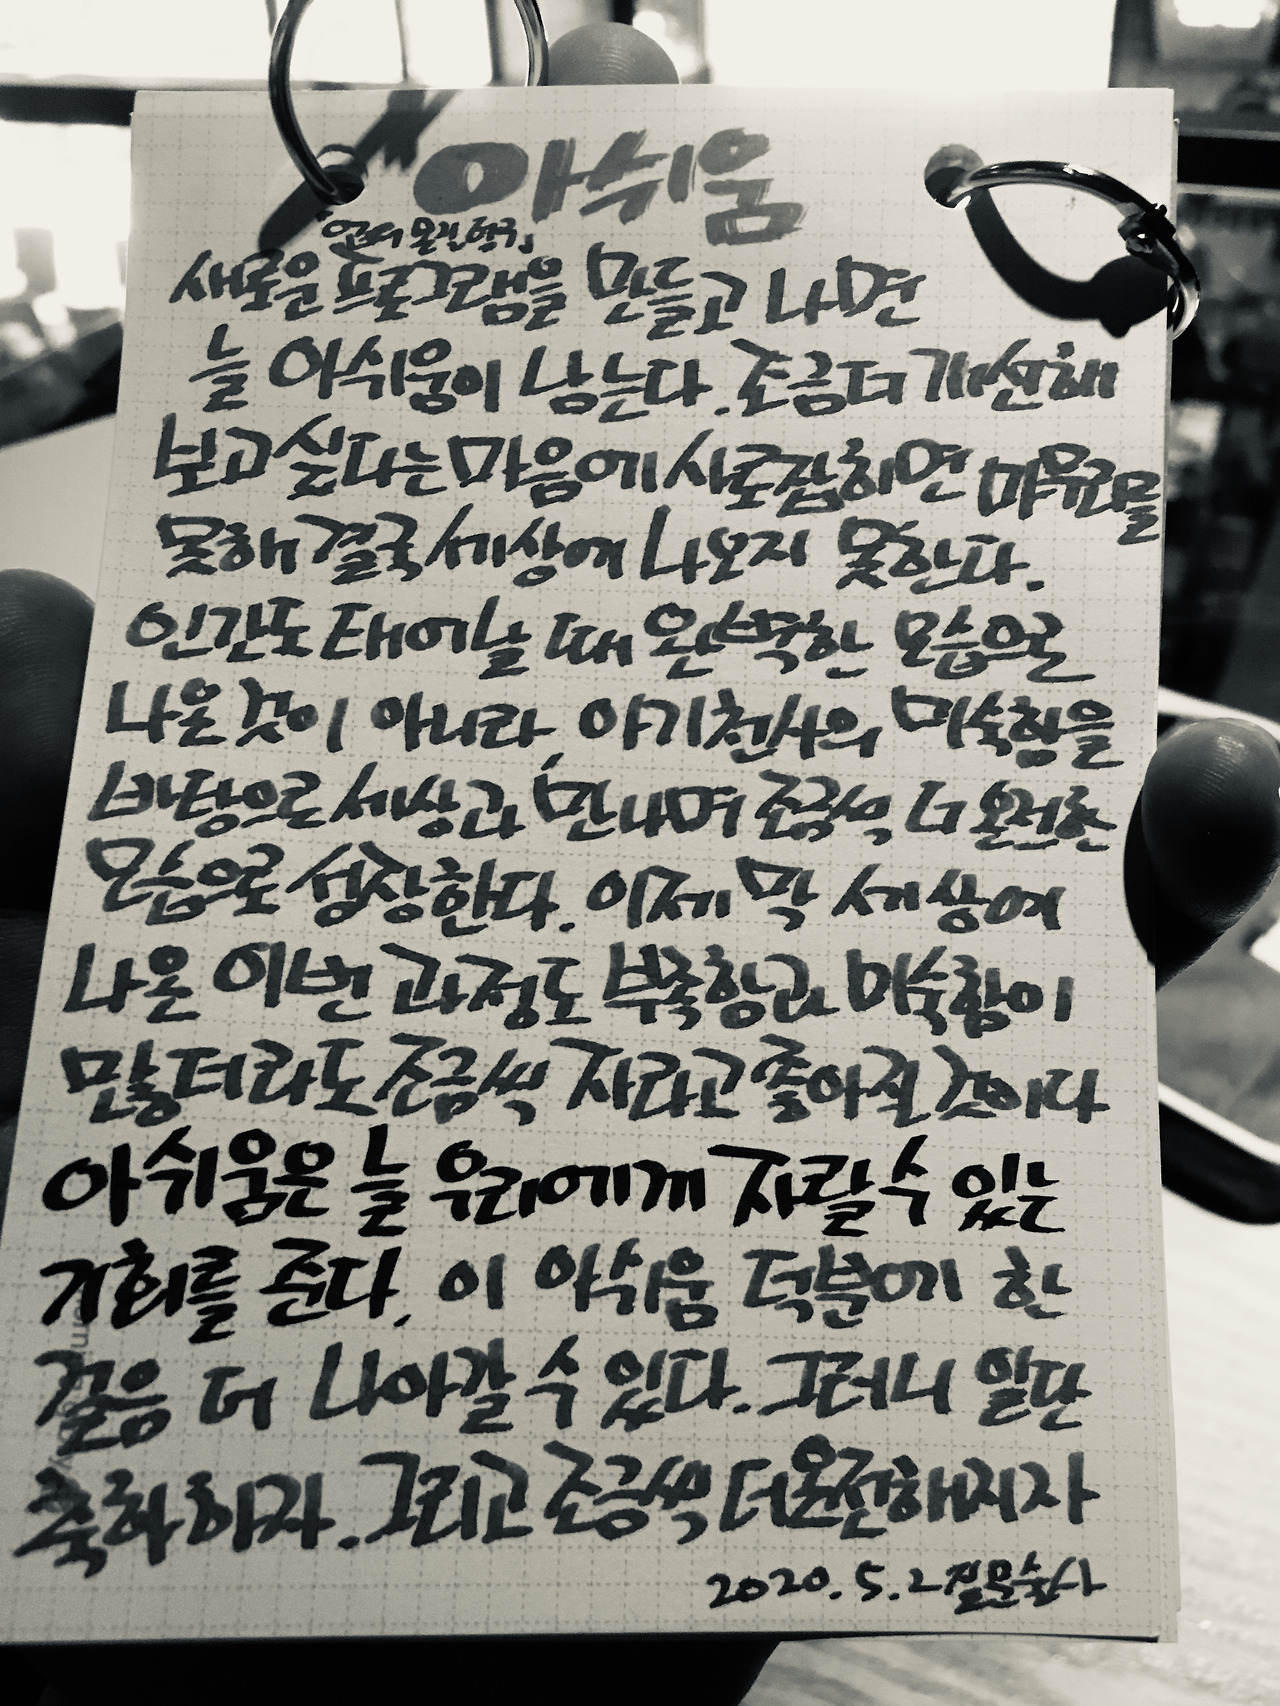 아쉬움
새로운 프로그램을 만들고 나면
늘 아쉬움이 남는다. 조금 더 개선해
보고 싶다는 마음에 사로잡히면 마무리를
못해 결국 세상에 나오지 못한다.
인간도 태어날 때 완벽한 모습으로
나온 것이 아니라, 아기천사의 미숙함을
바탕으로 세상과 만나며 조금씩 더 온전한
모습으로 성장한다. 이제 막 세상에
나온 이번 과정도 부족함과 미숙함이
많더라도 조금씩 자라고 좋아질 것이다
아쉬움은 늘 우리에게 자랄 수 있는
기회를 준다. 이 아쉬움 덕분에 한
걸음 더 나아갈 수 있다. 그러니 일단
축하하자. 그리고 조금씩 더 온전해지자
2020. 5. 2 질문술사